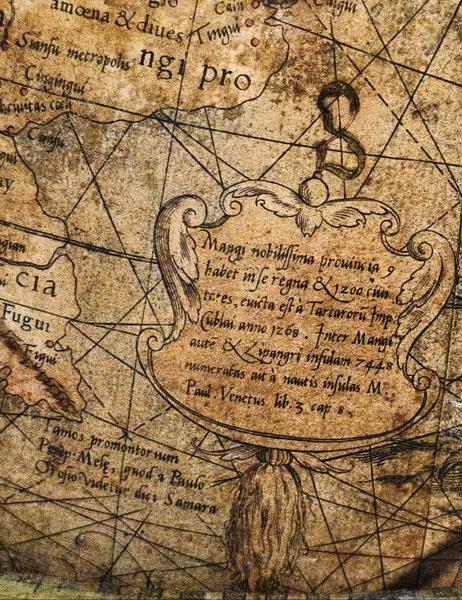 amœna & diues
Cain
Tingui
Cangui
Sianfu metropolis
ngi pro
Cingingui
Cangu
cia
Fugui
Tigui
Mangi nobilissima prouincia 9
habet in se regna & 1200 ciui
tates, euicta est à Tartarorū Imp.
Cublai anno 1268. Inter Mangi
autē & insulam 7448
numeratas ait à nautis insulas M.
Paul Venetus lib. 3 cap 8.
Tamos promontorium
Pomp. Melę, quod à Paulo
Orosio videtur dici Samara